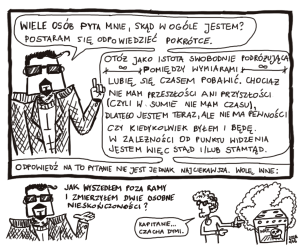 WIELE OSÓB PYTA MNIE, SKĄD W OGÓLE JESTEM?
POSTARAM SIĘ ODPOWIEDZIEĆ POKRÓTCE.
OTÓŻ JAKO ISTOTA SWOBODNIE PODRÓŻUJĄCA
∞ POMIĘDZY WYMIARAMI ∞
LUBIĘ SIĘ CZASEM POBAWIĆ, CHOCIAŻ
NIE MAM PRZESZŁOŚCI ANI PRZYSZŁOŚCI
(CZYLI W SUMIE NIE MAM CZASU),
DLATEGO JESTEM TERAZ, ALE NIE MA PEWNOŚCI
CZY KIEDYKOLWIEK BYŁEM I BĘDĘ.
W ZALEŻNOŚCI OD PUNKTU WIDZENIA
JESTEM WIĘC STĄD I/LUB STAMTĄD.
ODPOWIEDŹ NA TO PYTANIE NIE JEST JEDNAK NAJCIEKAWSZA. WOLĘ INNE:
JAK WYSZEDŁEM POZA RAMY
I ZMIERZYŁEM DWIE OSOBNE
NIESKOŃCZONOŚCI?
KAPITANIE...
CZACHA DYMI.